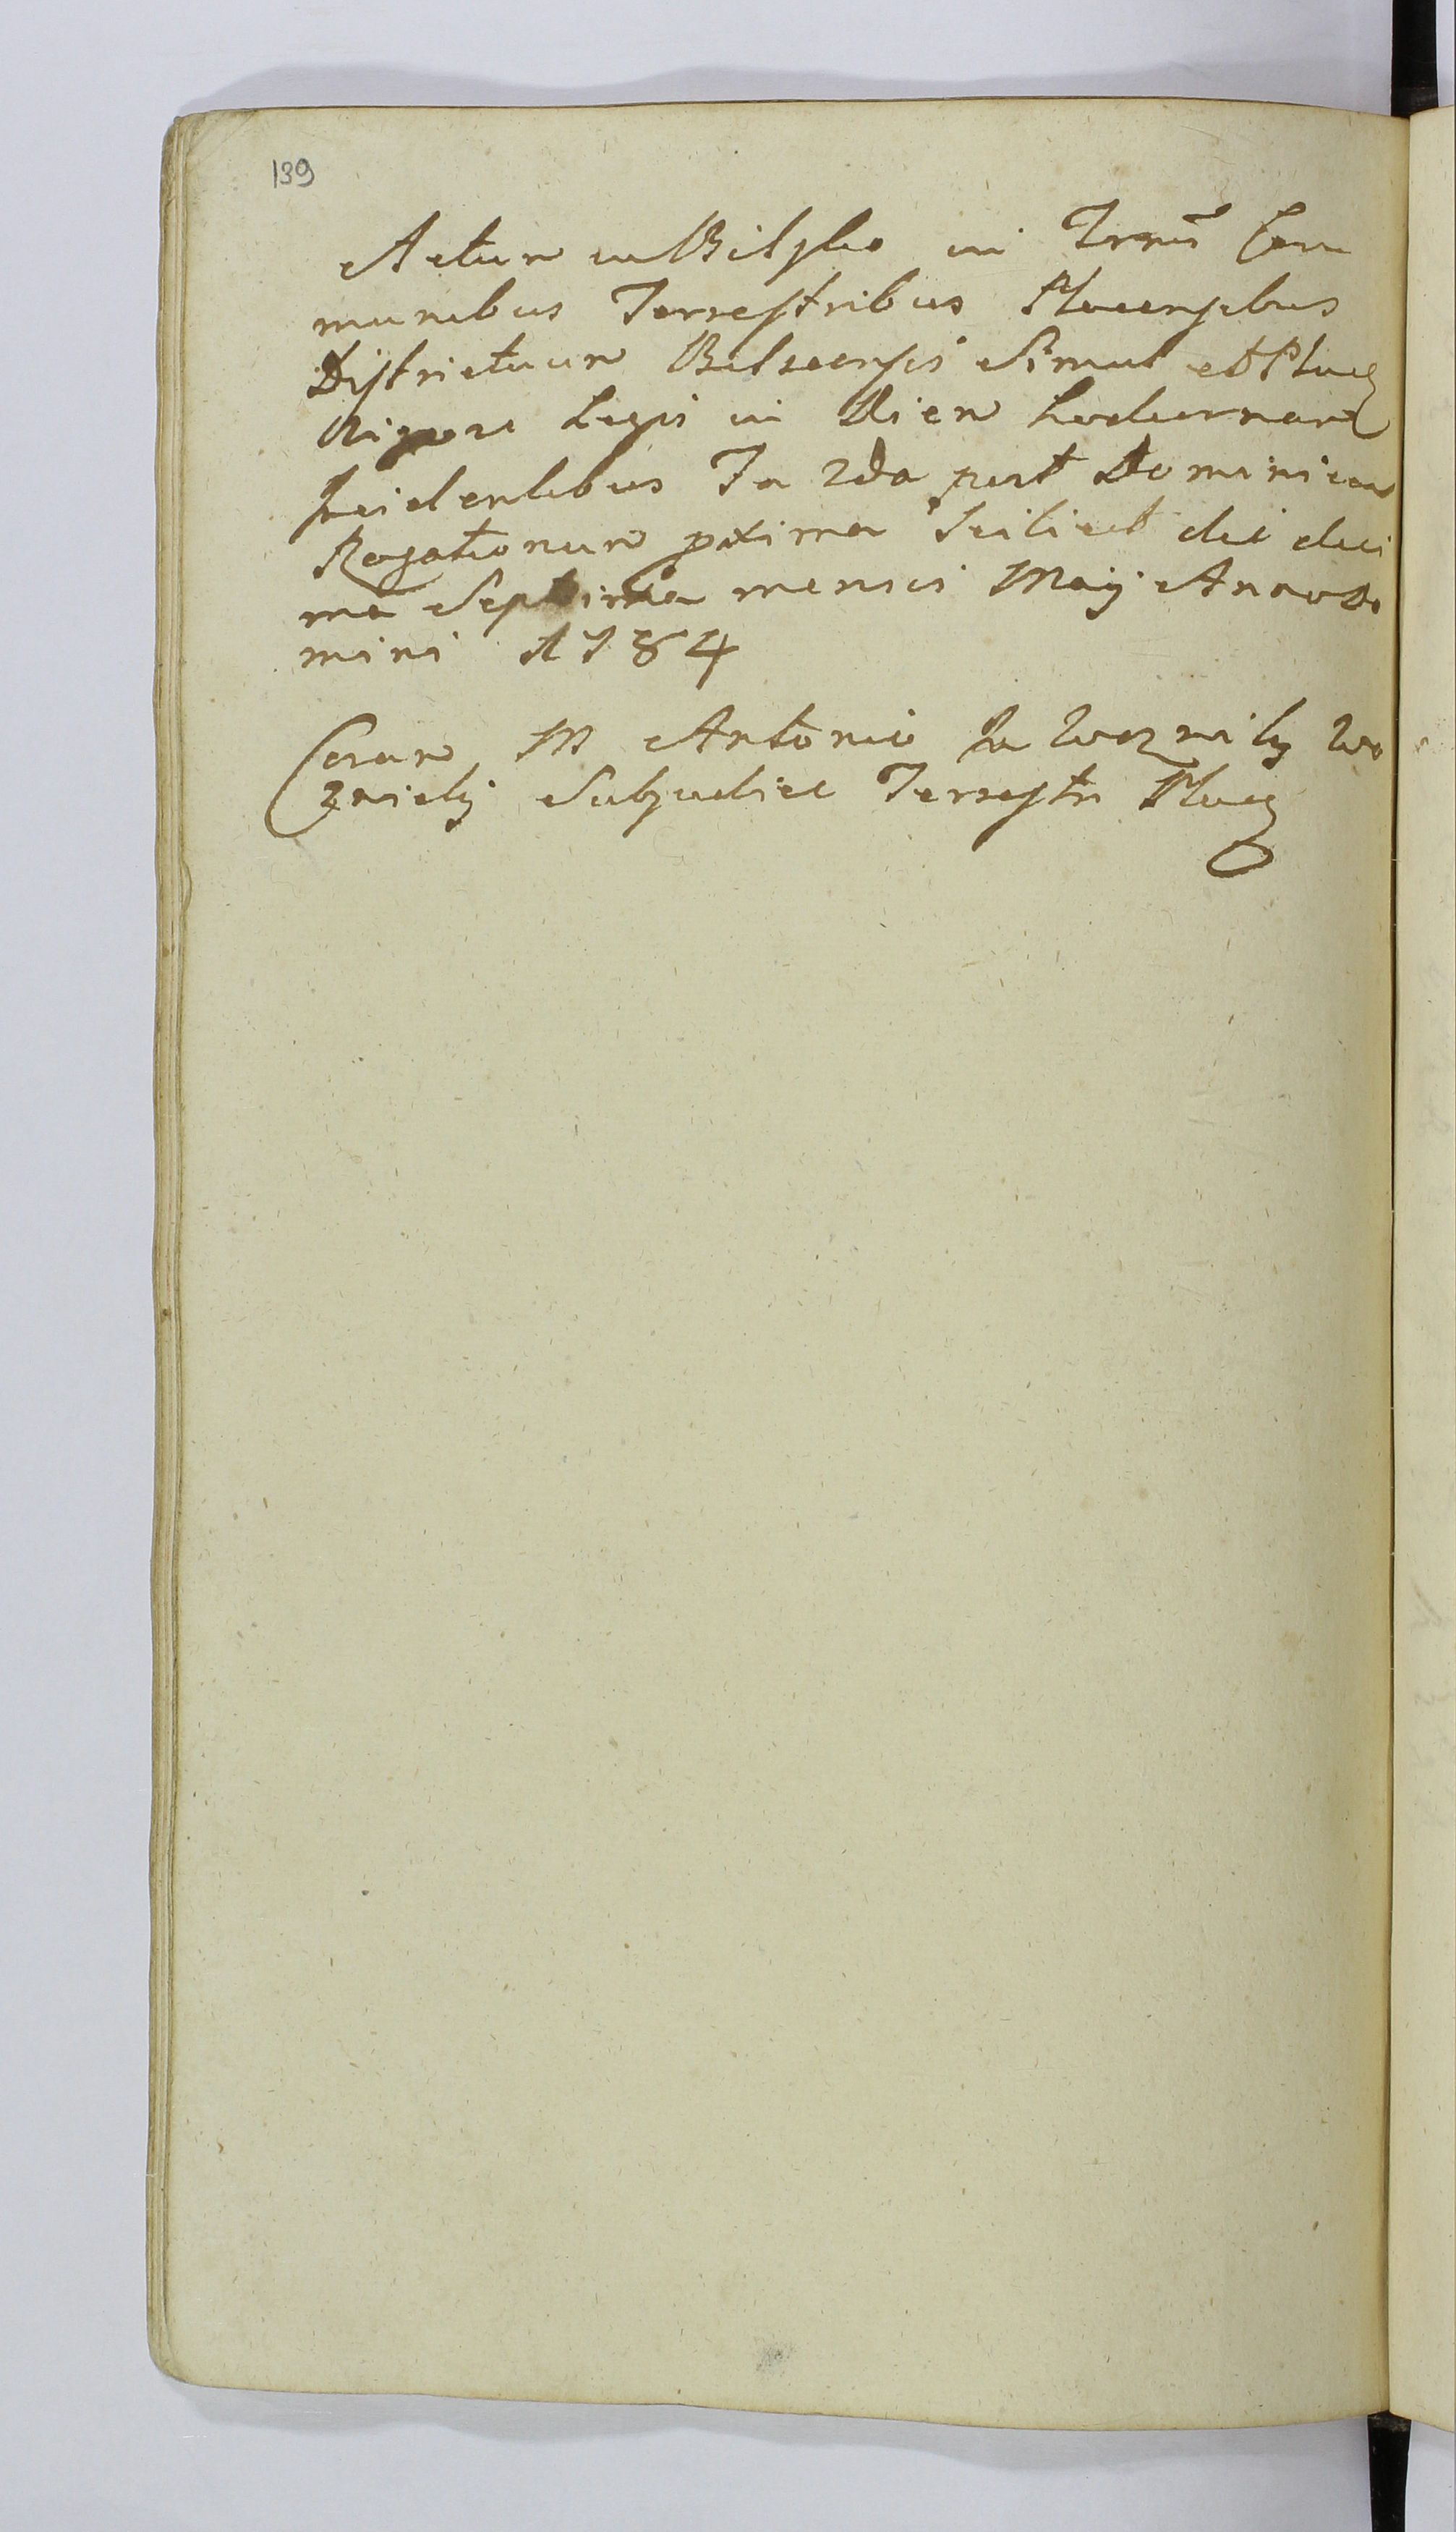 139
Actum in Bilsko in Trmis Com
munibus Terrestribus Plocensibus
Districtuum Bilscensis Simul et Ploc
Rigore Legis in Diem hodiernam
Incidentibus Fa 2da post Dominicam
Rogationum pxima Scilicet die deci
ma Septima mensis Maij Anno Do
mini 1784
Coram M Antonio de Woznik Wo
znicki Subjudice Terrestri Ploc